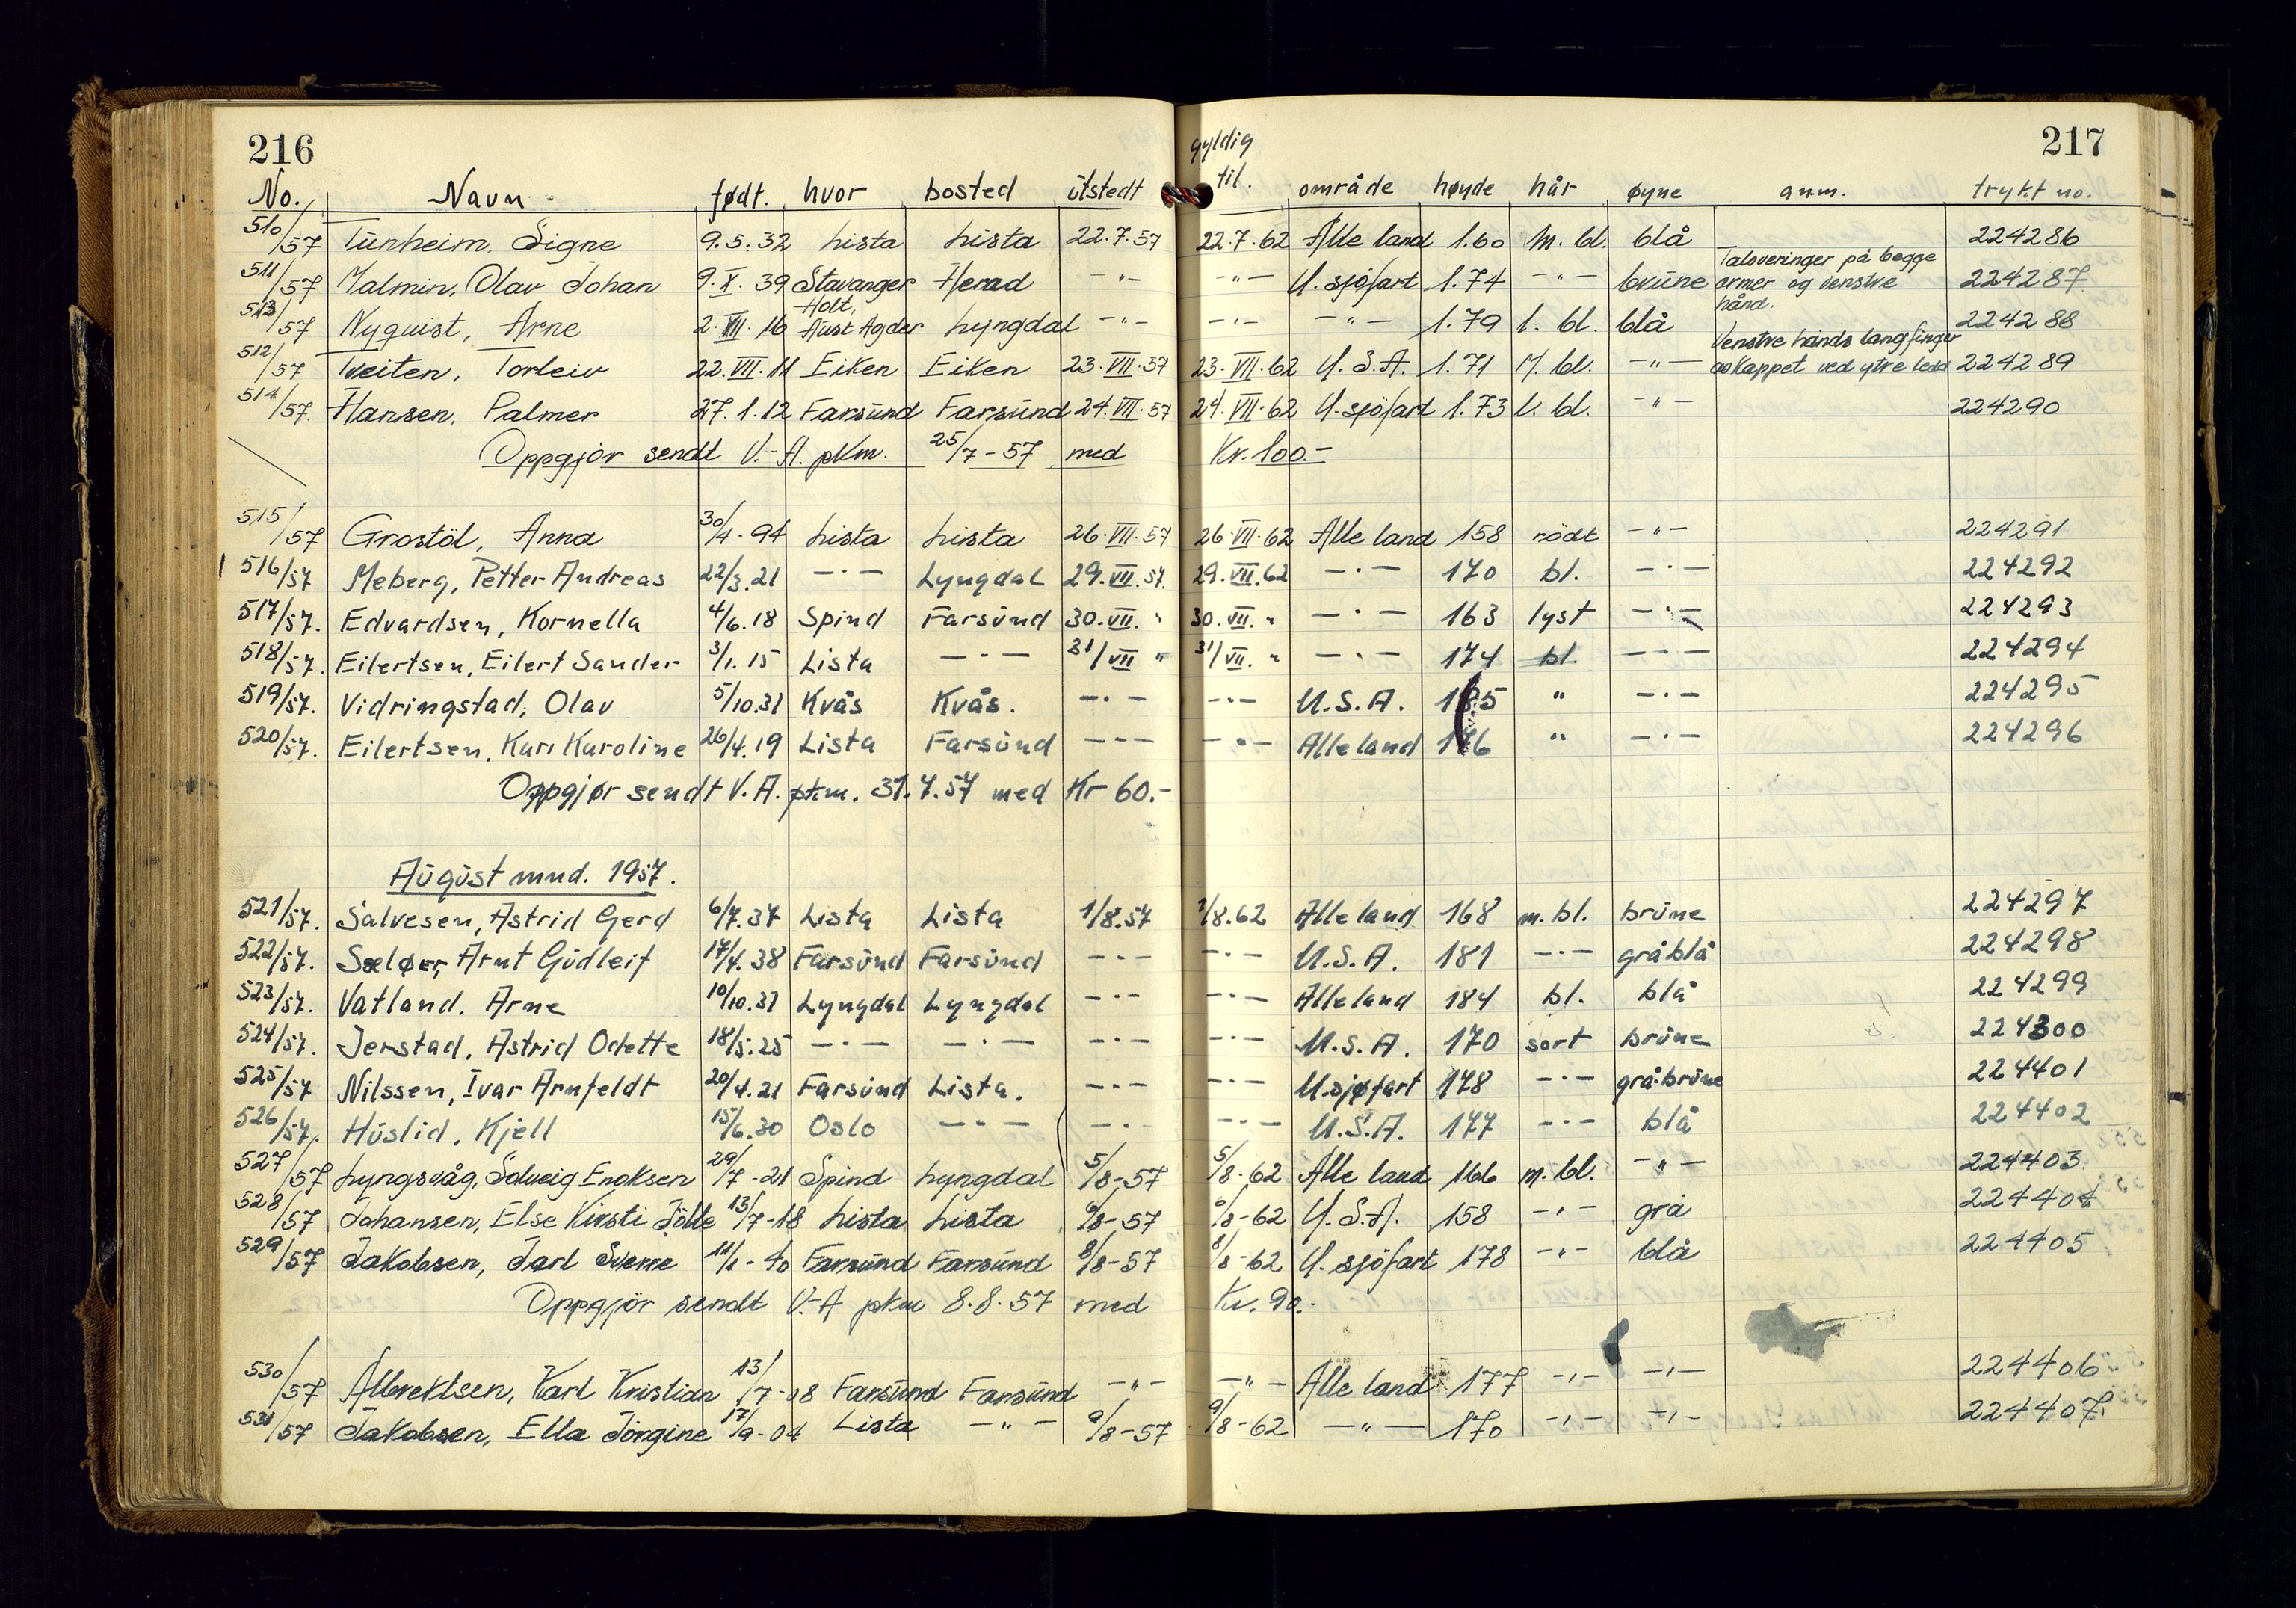 216
217
gyldig
No. Navn født. hvor bosted útstedt til. område høyde hår øyne anm. trykt no.
510/57 Tünheim, Signe 9.5.32 Lista Lista 22.7.57 22.7.62 Alle land 1.60 m. bl. blå 224286
511/57 Malmin, Olav Johan 9.X.39 Stavanger Herad -"- -"- U. sjöfart 1.74 -"- brüne Tatoveringer på begge armer og venstre hånd. 224287
513/57 Nyquist, Arne 2.VII.16 Holt, Aust Agder Lyngdal -"- -"- -"- 1.79 l. bl. blå 224288
512/57 Tveiten, Torleiv 22.VII.11 Eiken Eiken 23.VII.57 23.VII.62 U.S.A. 1.71 M. bl. -"- Venstre hånds langfinger avkappet ved ytre ledd 224289
514/57. Hansen, Palmer 27.1.12 Farsünd Farsünd 24.VII.57 24.VII.62 U.sjöfart 1.73 l. bl. -"- 224290
Oppgjör sendt V.-A. pkm. 25/7-57 med Kr. 100.-
515/57 Grostöl, Anna 30/4-94 Lista Lista 26.VII.57 26.VII.62 Alle land 158 rödt -"- 224291
516/57 Meberg, Petter Andreas 22/3.21 -"- Lyngdal 29.VII.57. 29.VII.62 -"- 170 bl. -"- 224292
517/57. Edvardsen, Kornella 4/6.18 Spind Farsúnd 30.VII. " 30.VII. " -"- 163 lyst -"- 224293
518/57. Eilertsen, Eilert Sander 3/1.15 Lista -"- 31/VII " 31/VII. " -"- 174 bl. -"- 224294
519/57. Vidringstad, Olav 5/10.31 Kvås Kvås. -"- -"- U.S.A. 185 " -"- 224295
520/57. Eilertsen, Kari Karoline 26/4.19 Lista Farsúnd -"- -"- Alle land 176 " -"- 224296
Oppgjør sendt V.A. pkm. 31.7.57 med Kr 60.-
Aúgúst mnd. 1957.
521/57. Salvesen, Astrid Gerd 6/7.37 Lista Lista 1/8.57 1/8.62 Alle land 168 m. bl. brúne 224297
522/57. Sæløer, Arnt Gúdleif 17/4.38 Farsúnd Farsúnd -"- -"- U.S.A. 181 -"- gråblå 224298
523/57. Vatland, Arne 10/10.31 Lyngdal Lyngdal -"- -"- Alle land 184 bl. blå 224299
524/57. Jerstad, Astrid Odette 18/5.25 -"- -"- -"- -"- U.S.A. 170 sort brúne 224300
525/57 Nilssen, Ivar Arnfeldt 20/4.21 Farsúnd Lista. -"- -"- U.sjøfart 178 -"- gråbrúne 224401
526/57. Húslid, Kjell 15/6.30 Oslo -"- -"- -"- U.S.A. 177 -"- blå 224402
527/57 Lyngsvåg, Solveig Enoksen 29/7-21 Spind Lyngdal 5/8-57 5/8-62 Alle land 166 m. bl. -"- 224403
528/57 Johansen, Else Kirsti Jölle 13/7-18 Lista Lista 6/8-57 6/8-62 U.S.A. 158 -"- grå 224404
529/57 Jakobsen, Jarl Sverre 11/1-40 Farsünd Farsünd 8/8-57 8/8-62 U. sjöfart 178 -"- blå 224405
Oppgjör sendt V.-A pkm 8.8.57 med Kr. 90.-
530/57 Albrektsen, Karl Kristian 13/7-18 Farsünd Farsünd -"- -"- Alle land 177 -"- -"- 224406
531/57 Jakobsen, Ella Jörgine 17/9-04 Lista -"- 9/8-57 9/8-62 -"- 170 -"- -"- 224407